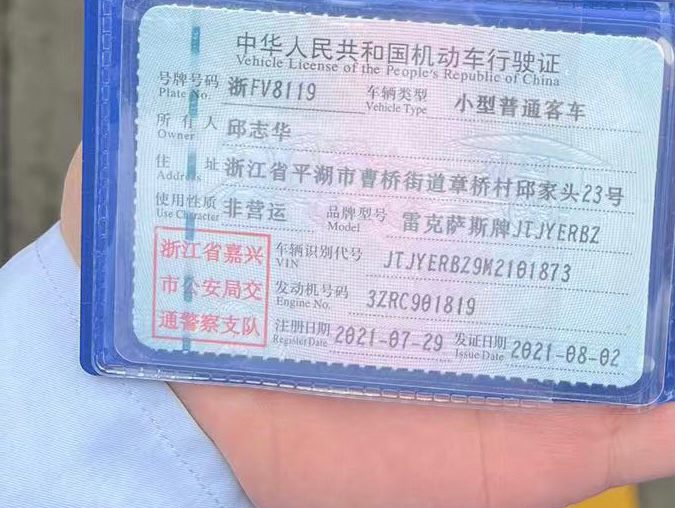 中华人民共和国机动车行驶证
Vehicle License of the People's Republic of China
号牌号码 浙FV8119 车辆类型 小型普通客车
Plate No. Vehicle Type
所有人 邱志华
Owner
住址 浙江省平湖市曹桥街道章桥村邱家头23号
Address
使用性质 非营运 品牌型号 雷克萨斯牌JTJYERBZ
Use Character Model
浙江省嘉兴
市公安局交
通警察支队
车辆识别代号 JTJYERBZ9M2101873
VIN
发动机号码 3ZRC901819
Engine No.
注册日期 2021-07-29 发证日期 2021-08-02
Register Date Issue Date